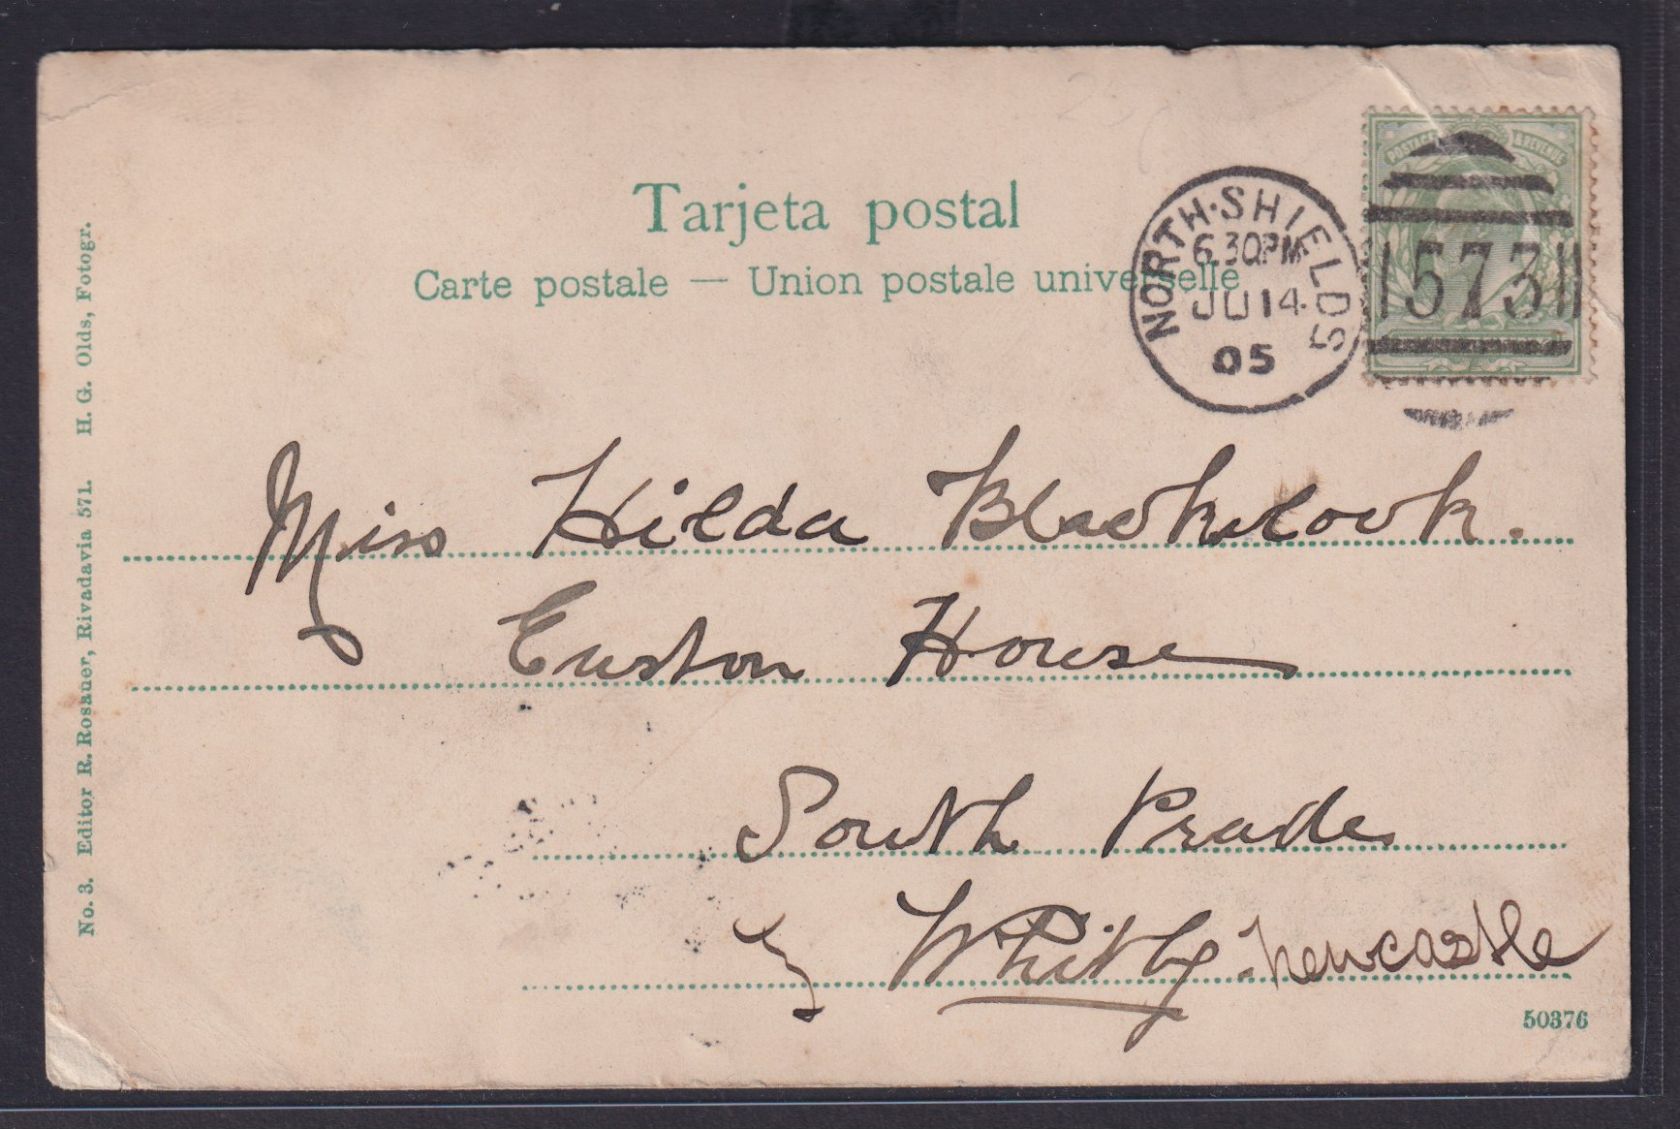 Tarjeta postal
Carte postale — Union postale universelle
POSTAGE & REVENUE
NORTH·SHIELDS
6.30PM
JU 14
05
573
Miss Hilda Blacklock.
Euston House
South Prade
Whitby Newcastle
50376
No. 3. Editor R. Rosauer, Rivadavia 571. H. G. Olds, Fotogr.